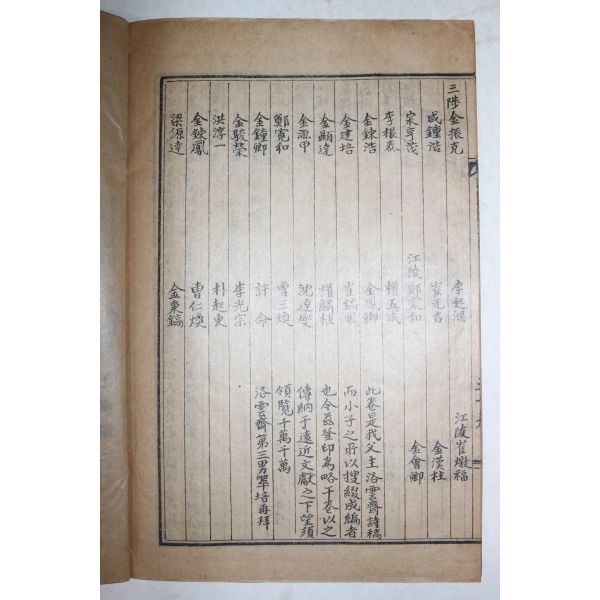 三陟金振克
成鍾浩
宋亨茂
李根泰
金鍊浩
金建培
金顯達
金源甲
鄭寬和
金鐘卿
金駿榮
洪淳一
金鍊鳳
梁源達
李起鴻
崔元吉
江陵鄭寅和
權五成
金鳳卿
崔錫鳳
權麟植
沈達燮
曺三煥
許命
李光宗
朴起東
曹仁煥
金秉鎬
江陵崔燉福
金漢柱
金會卿
此卷是我父主洛雲齋詩稿
而小子之所以搜綴成編者
也今玆登印爲略干卷以之
傳納于遠近文獻之下望須
領覽千萬千萬
洛雲齋第三男翠培再拜